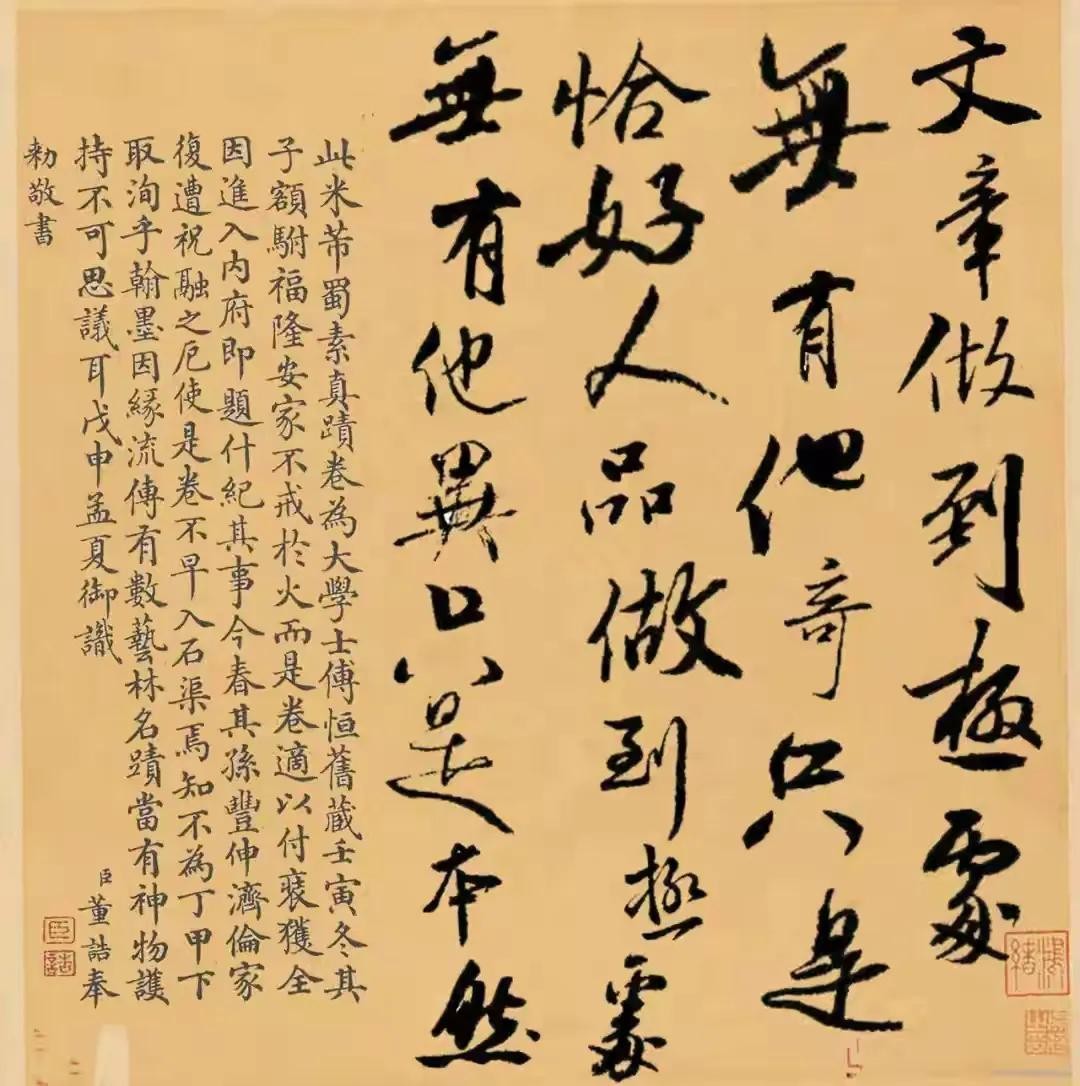 文章做到極處
無有他奇只是
恰好人品做到極處
無有他異只是本然
此米芾蜀素真蹟卷為大學士傅恒舊藏壬寅冬其
子額駙福隆安家不戒於火而是卷適以付裝獲全
因進入內府即題什紀其事今春其孫豐伸濟倫家
復遭祝融之厄使是卷不早入石渠焉知不為丁甲下
取洵乎翰墨因緣流傳有數藝林名蹟當有神物護
持不可思議耳戊申孟夏御識
臣董誥奉
勅敬書
臣
誥